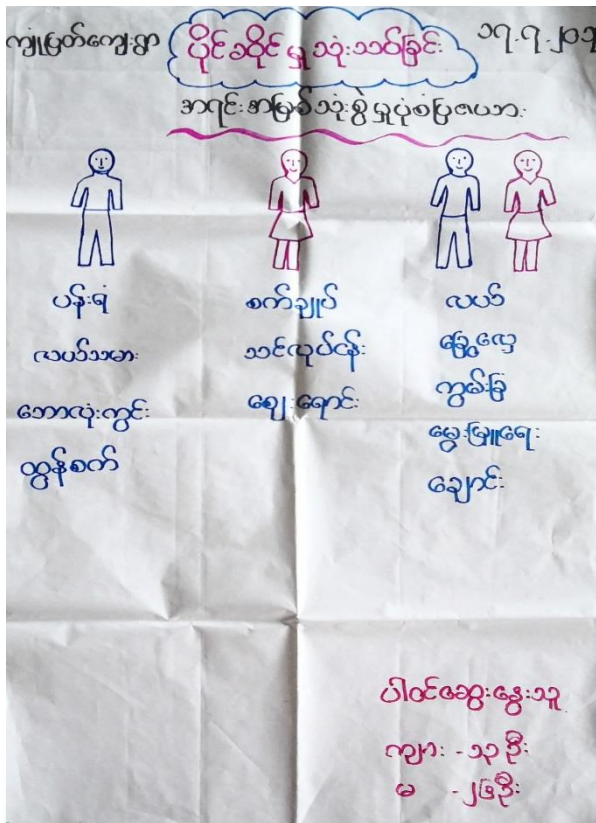 ကျုံပြတ်ကျေးရွာ
ပိုင်ဆိုင်မှု သုံးသပ်ခြင်း
၁၇.၇.၂၀၁
အရင်းအမြစ်သုံးစွဲမှုပုံစံပြဇယား
ပန်းရံ
လယ်သမား
ဘောလုံးကွင်း
ထွန်စက်
စက်ချုပ်
သင်လုပ်ငန်း
ဈေးရောင်း
လယ်
ခြွေလှေ့
ကွမ်းခြံ
မွေးမြူရေး
ချောင်း
ပါဝင်ဆွေးနွေးသူ
ကျား - ၁၃ ဦး
မ - ၂၆ ဦး